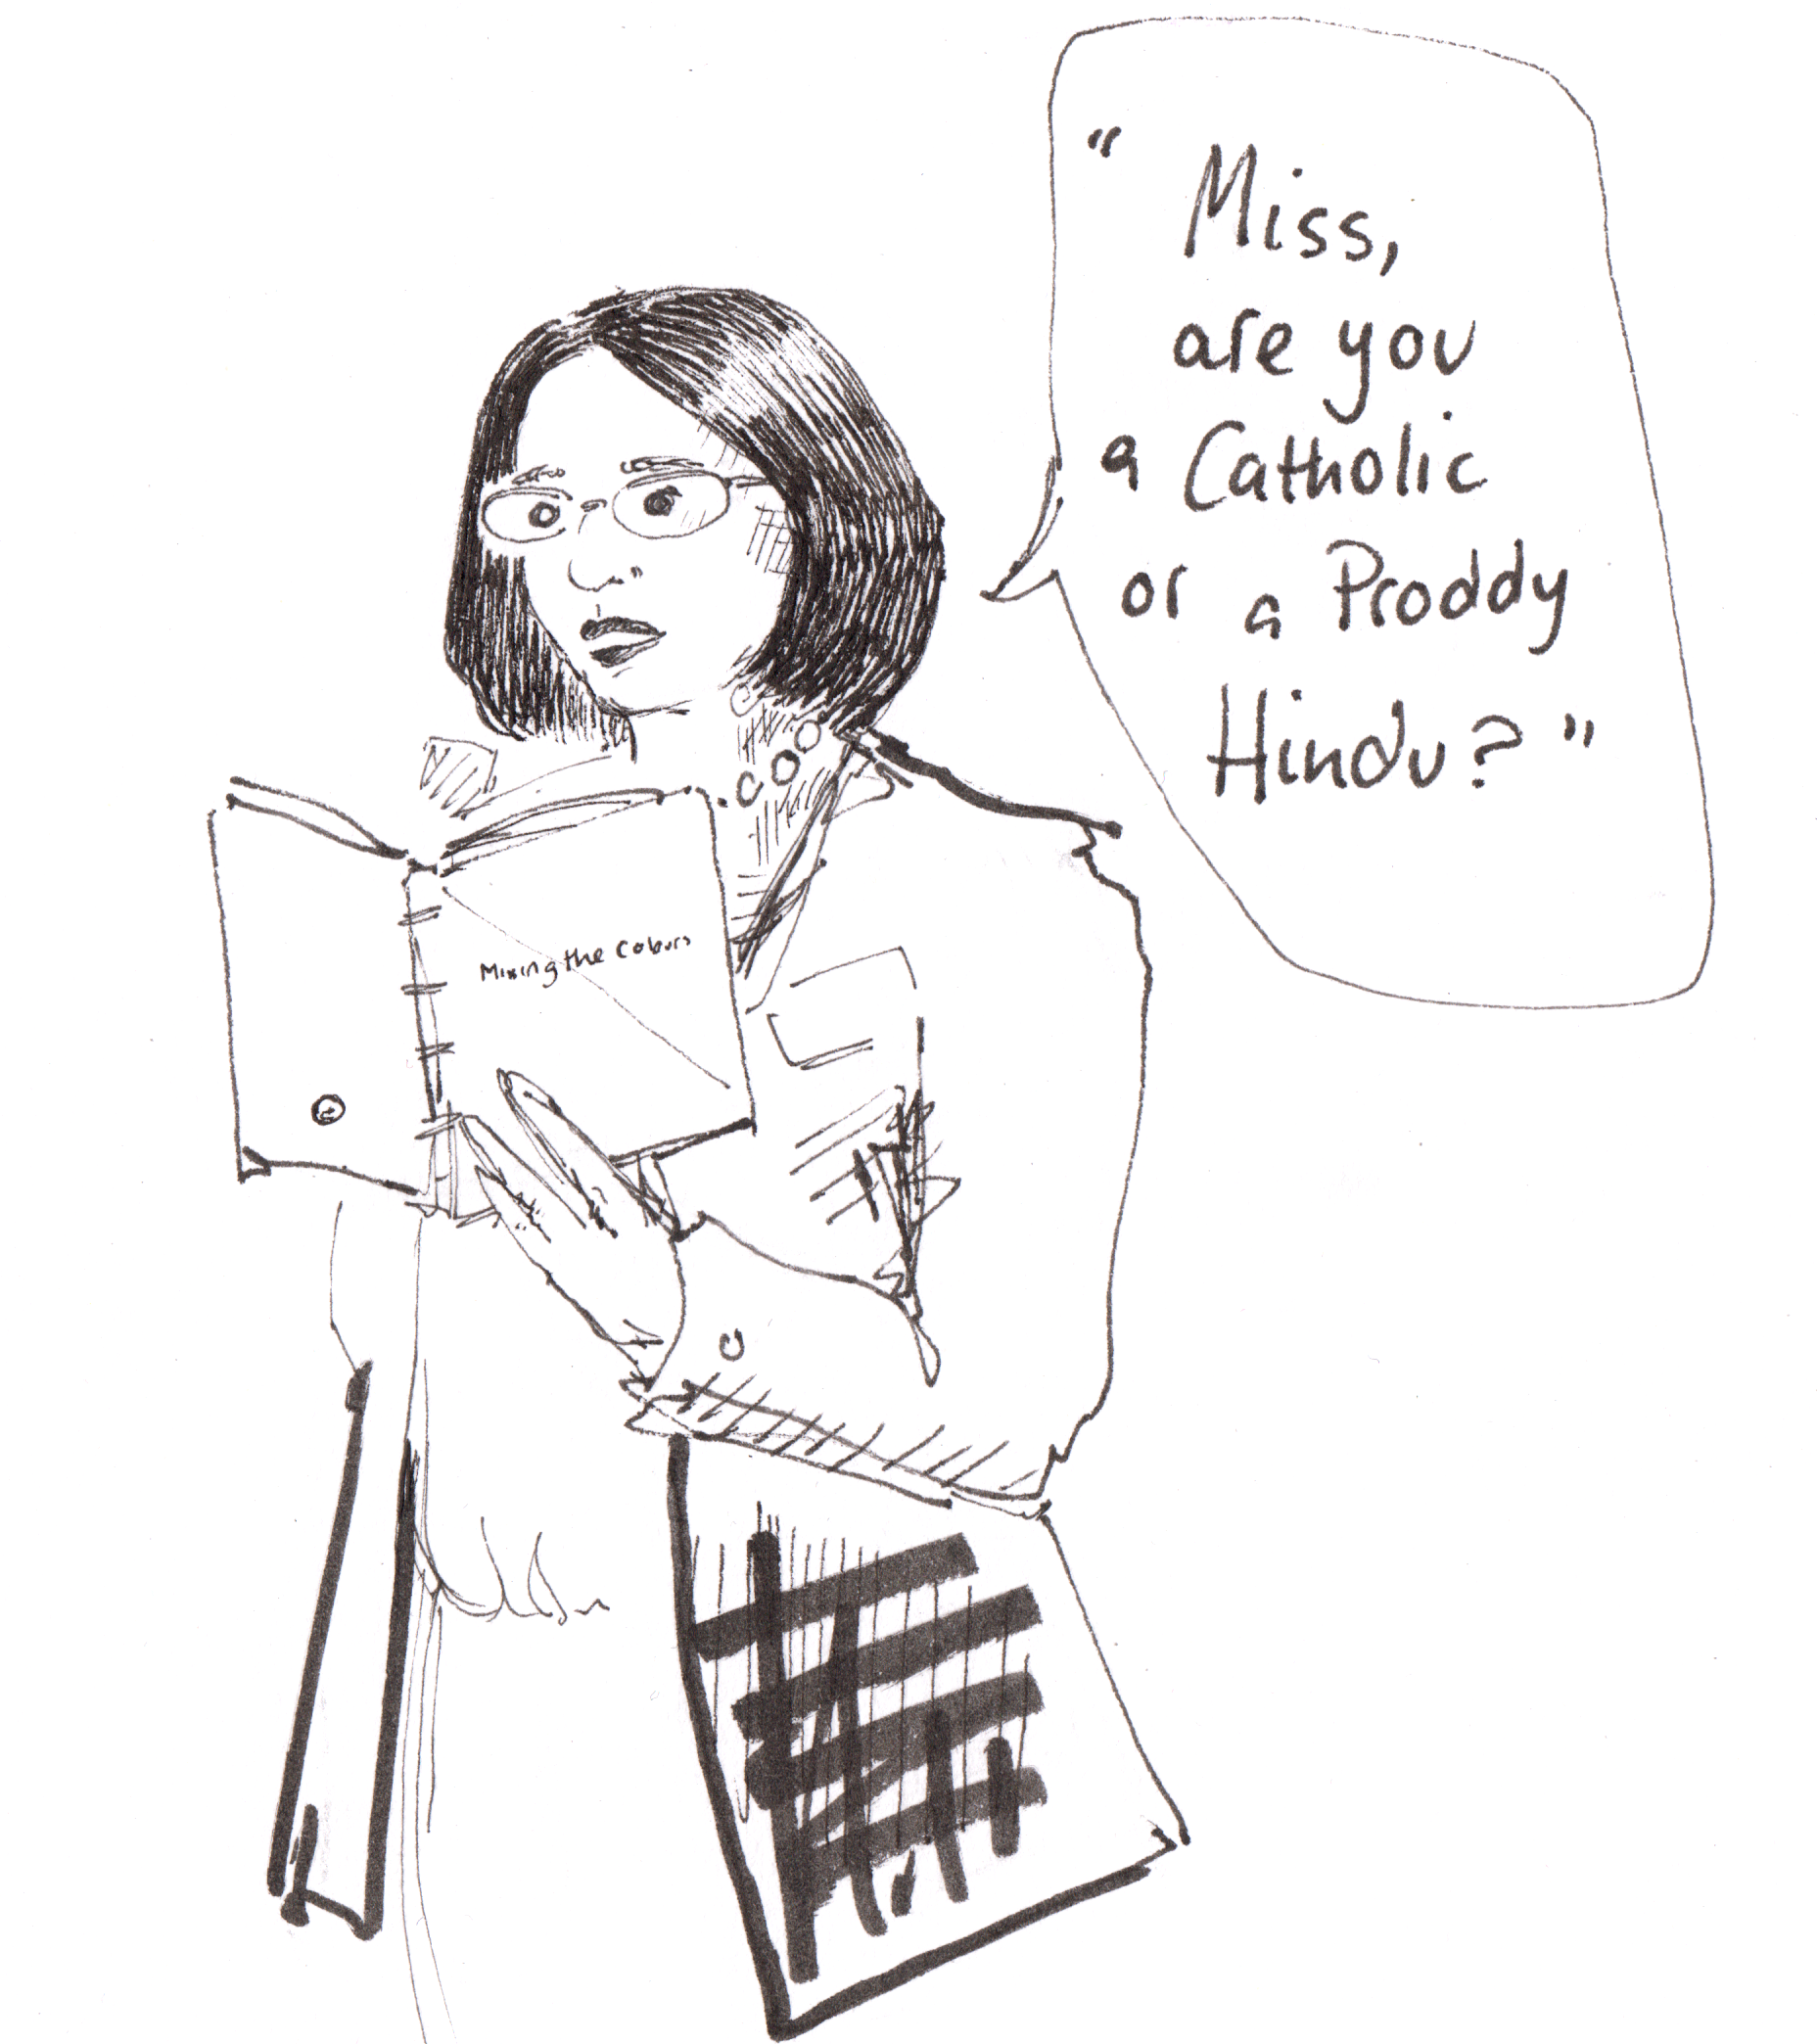 “Miss,
are you
a Catholic
or a Proddy
Hindu?”
Mixing the Colours